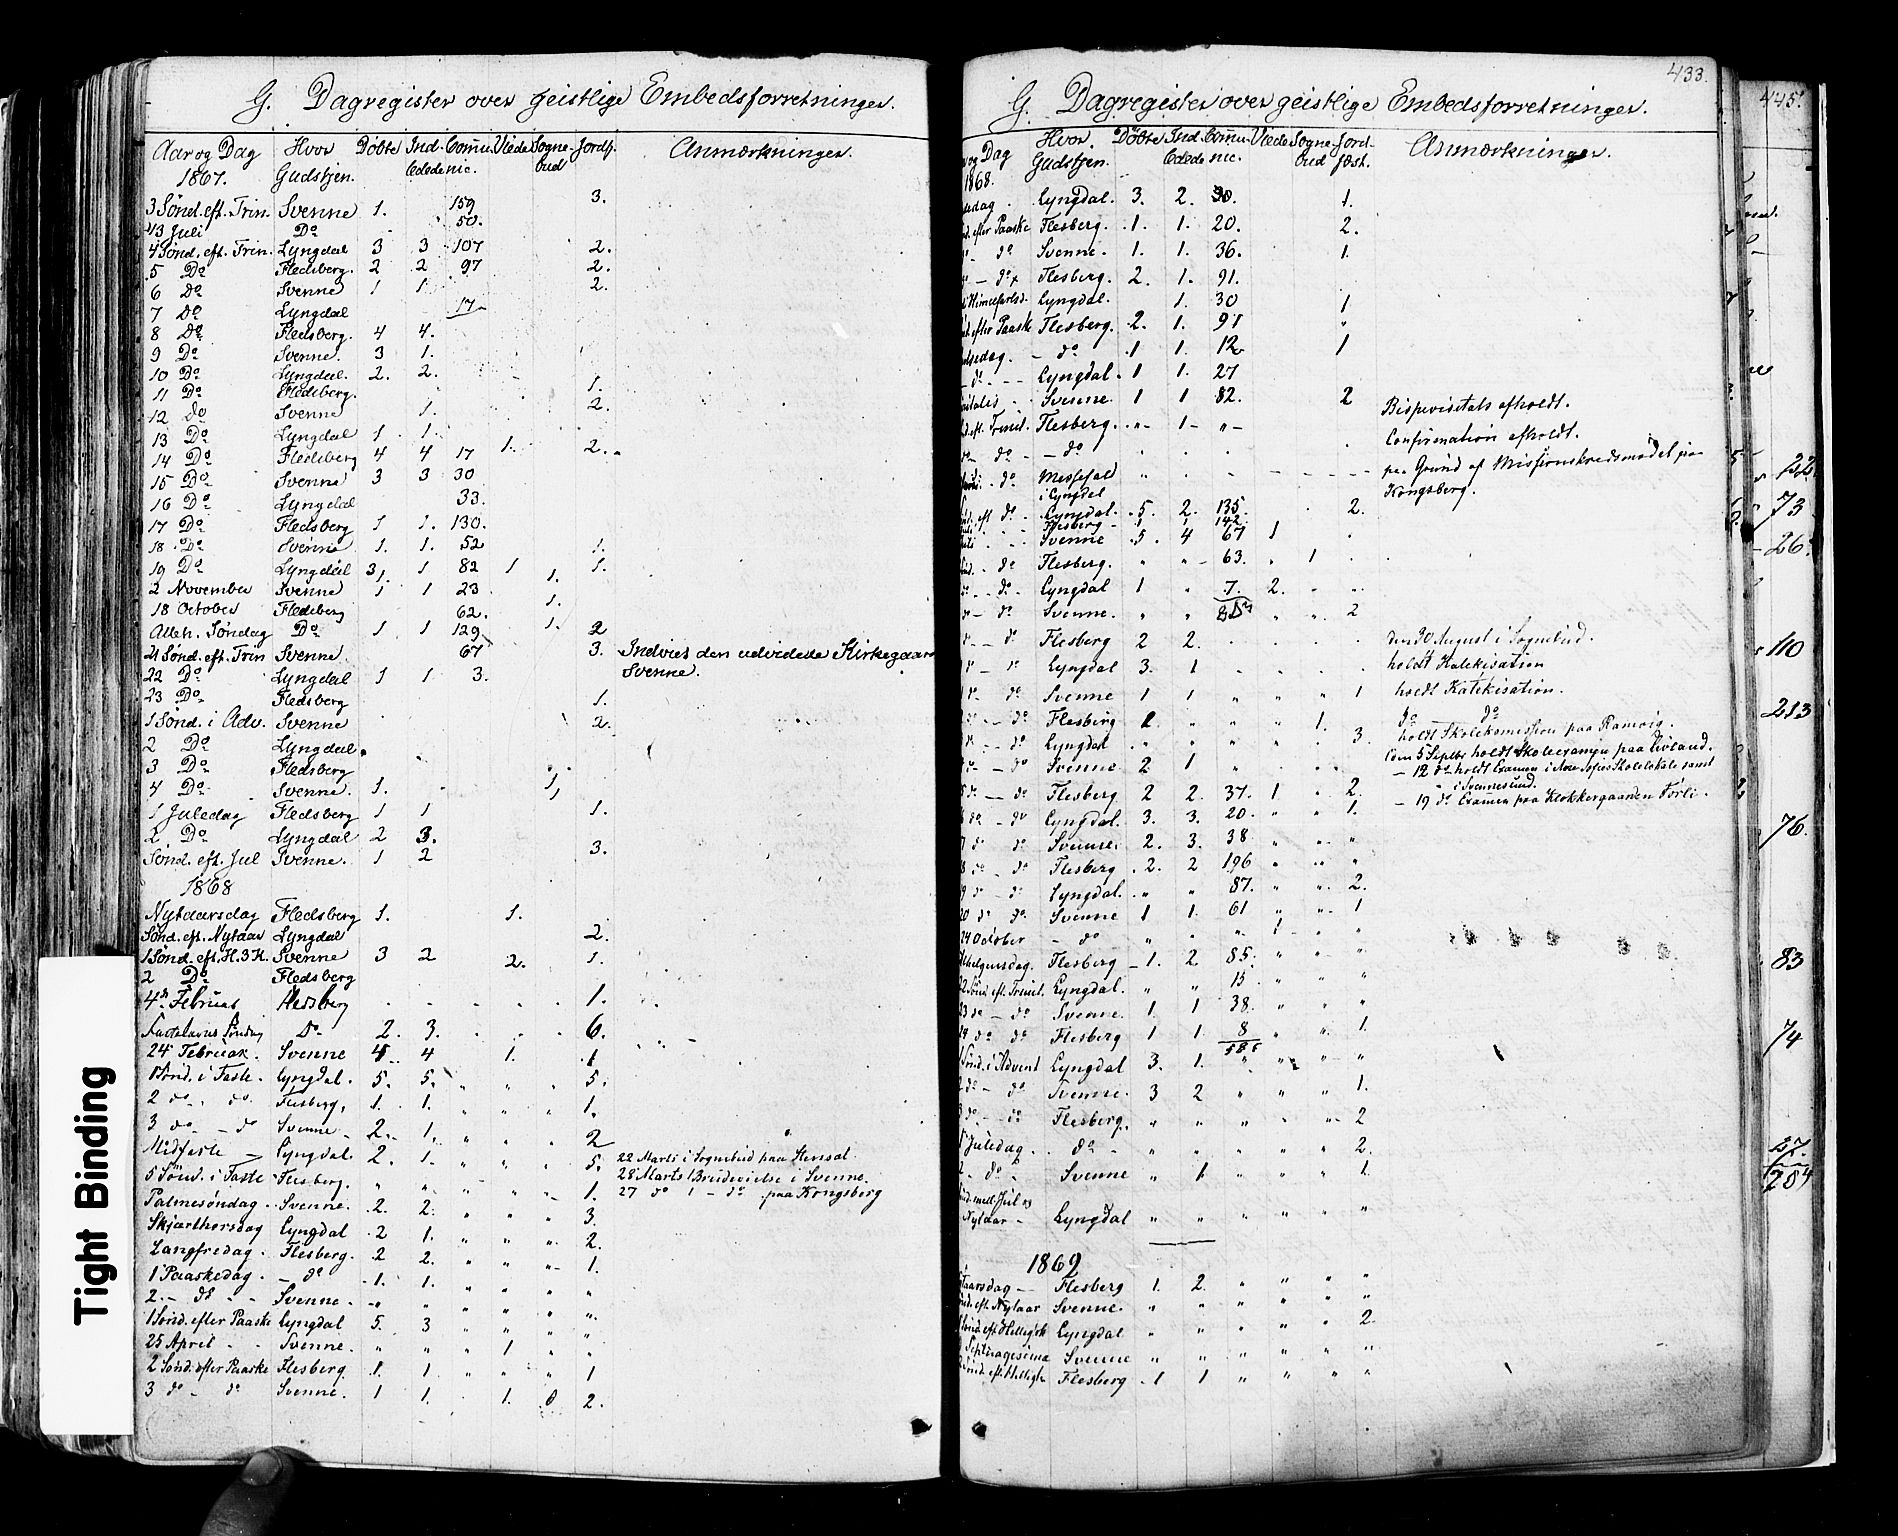 G. Dagregister over geistlige Embedsforretninger.
Aar og Dag Hvor Døbte Ind- Comu- Viede Sogne- Jordf.
1867. Gudstjen. ledede nic. bud Anmærkninger.
3 Sønd. eft. Trin. Svenne 1. 159 3.
13 Juli Do 50.
4 Sønd. eft. Trin. Lyngdal 3 3 107 2.
5 Do Fledsberg. 2 2 97 2.
6 Do Svenne 1 1 2.
7 Do Lyngdal 17
8 Do Fledsberg. 4 4.
9 Do Svenne. 3 1.
10 Do Lyngdal. 2. 2.
11 Do Fledsberg. 1.
12 do Svenne 1. 2.
13 Do Lyngdal 1 1.
14 Do Fledsberg 4 4 17 1. 2.
15 Do Svenne 3 3 30
16 Do Lyngdal 33.
17 Do Fledsberg 1 1. 130.
18 Do Svenne 1. 1. 52 1.
19 Do Lyngdal 3 1 82 1 1.
2 November Svenne 1 1 23 1.
18 October Fledsberg 62. 1.
Alleh. Søndag Do 1 1 129 1. 2
21 Sønd. eft. Trin Svenne. 67 3. Indviet den udvidede Kirkegaard
22 Do Lyngdal 1 1 3. Svenne.
23 Do Fledsberg 1.
1 Sønd. i Adv. Svenne 2.
2 Do Lyngdal
3 Do Fledsberg
4 Do Svenne. 1. 1
1 Juledag Fledsberg 1 1 1.
2 Do Lyngdal 2 3.
Sønd. eft. Jul Svenne. 1 2 3.
1868
Nytaarsdag Fledsberg 1. 1.
Sønd. eft. Nytaar Lyngdal 2.
1 Sønd. eft. H.3K. Svenne 3 2 2. 1.
2 Do Fledsberg
4de Februar Flesberg 1.
Fastelavns Søndag Do 2. 3. 6.
24 Februar. Svenne 4 4 1. 1
1 Sønd. i Faste. Lyngdal. 5. 5. " " 5.
2 do. do. Flesberg. 1. 1. " " 1.
3 do - do Svenne. 2. 1. " " 2
Midfaste - Lyngdal. 2. 1. " " 5. 22 Marts i Sognebud paa
5 Sønd. i Faste Flesberg. " " " " 1. 28 Marts 1 Brudevielse i Svenne.
Palmesøndag. Svenne. 2. 2. " " 3. 27 do 1 - do paa Kongsberg
Skjærthorsdag Lyngdal 2 1. " " 2.
Langfredag. Flesberg. 2 2. " " 1.
1 Paaskedag. - do 1. 1. " " "
2. - do - Svenne. " " " "
1 Sønd. efter Paaske Lyngdal 5. 3 " " "
25 April - Svenne. " " 1 " "
2 Sønd. efter Paaske Flesberg 1. 1 " " 1
3 do - do Svenne. 1 1. 1. 0 2.
433.
G. Dagregister over geistlige Embedsforretninger.
og Dag Hvor Døbte Ind- Comu- Viede Sogne- Jord-
1868. Gudstjen. ledede nic. bud fæst. Anmærkninger.
Lyngdal. 3. 2. 30. 1.
efter Paaske Flesberg. 1. 1. 20. 2.
do Svenne. 1. 1. 36. 1.
do Flesberg. 2. 1. 91.
Himmelfartsd. Lyngdal. 1. 30 1
efter Paaske Flesberg. 2. 1. 91 "
- do 1 1. 12 1
do - Lyngdal. 1 1. 27
Svenne. 1 1 82. 2 Bispevisitats afholdt.
eft. Trinit. Flesberg. " 1 " Confirmation afholdt.
do - do paa Grund af Missionskredsmødet paa
do Messefald " Kongsberg.
i Lyngdal
eft do. Lyngdal. 5. 2. 135. 2.
Flesberg 1 1 142.
Svenne 5. 4 67 1
do Flesberg. " " 63. " 1
do. Lyngdal 1 " 7. 2. "
do Svenne. " " " 2
do Flesberg 2 2. den 30 August i Sognebud.
do Lyngdal 3. 1 holdt Katekisation
do Svenne 1 1 " " " 1 holdt Katekisation.
do Flesberg " " " 1. do do
do Lyngdal " " " 3. holdt Skolekommission paa
do Svenne 2 1 " den 5 Septbr holdt Skoleexamen paa
do Flesberg 2 2. 37. 1 " 2. - 12 do holdt Examen i Skolelokale samt
i
do Lyngdal. 3. 3. 20. " " 1. - 19 do Examen paa Klokkergaarden
do Svenne. 2. 3. 38 " " "
do Flesberg 2. 2 196 " " "
do Lyngdal. " " 87. " " 2.
20 do do Svenne 1 1. 61 " " 1
24 October - do " " " 1 " "
Flesberg 1. 2. 85. " " "
22 Sønd. eft. Trinit. Lyngdal. " " " "
23 do - do Svenne. 1. 1 38. " "
24 do do Flesberg 1 1. 8 " " 1.
1 Sønd. i Advent Lyngdal 3. 1. " " "
2 do - do Svenne. 3 2 " " " 1.
do - do Flesberg. " " " " " 2
Juledag. do " " " " " 2.
- do. Svenne " 1 " " " 1.
mell. Jul og
Nytaar - Lyngdal " " " " " "
1869
Nytaarsdag - Flesberg 1. 2. " " " "
eft. Nytaar Svenne. " " " " " "
Lyngdal " " " " " 2.
Septuagesima Svenne " " " " " "
Flesberg 1 1 " " " "
445.
73
26.
110
213
76.
83
74
27.
Tight Binding